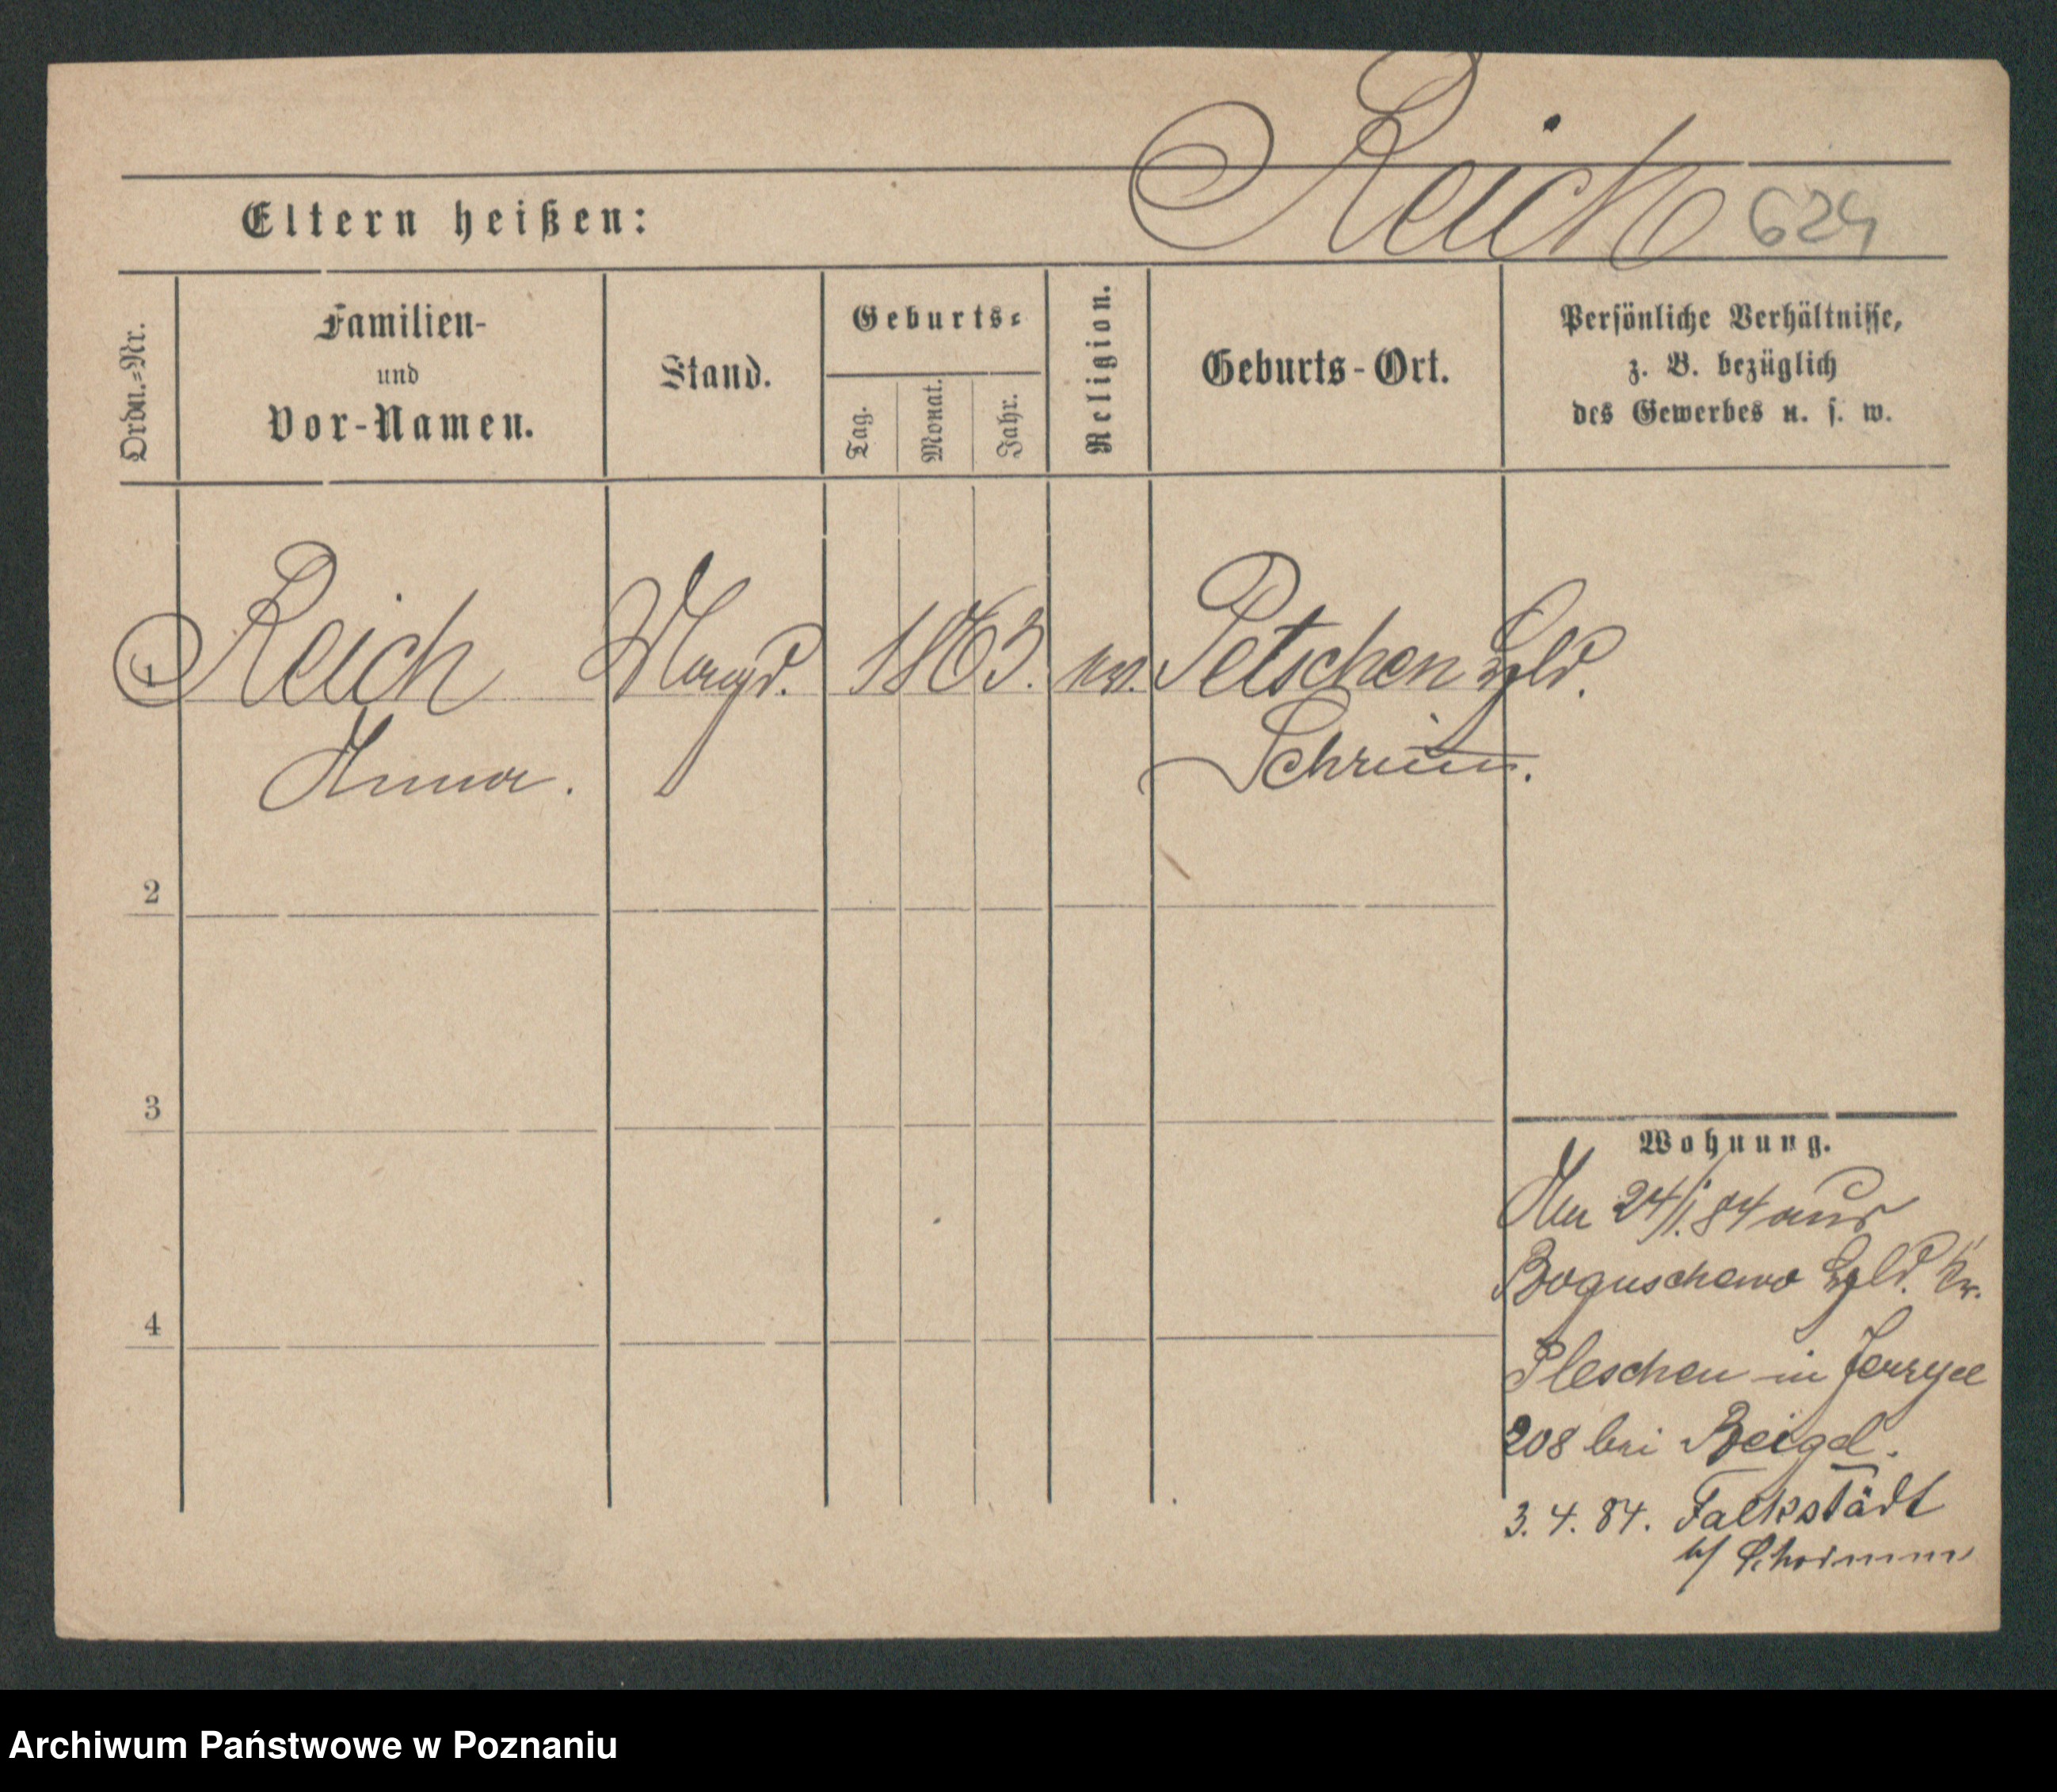 Reich 624
Eltern heißen:
Ordn.=Nr.
Familien-
und
Vor-Namen.
Stand.
Geburts=
Tag.
Monat.
Jahr.
Religion.
Geburts-Ort.
Persönliche Verhältnisse,
z. B. bezüglich
des Gewerbes u. s. w.
1 Reich Magd. 1863. Petschen Hld.
Anna. Schrim.
2
3
4
Wohnung.
24/1.84 aus
Boguschewo Hld. Kr.
Pleschen in Jerzyce
208 bei Beigel.
3. 4. 84.